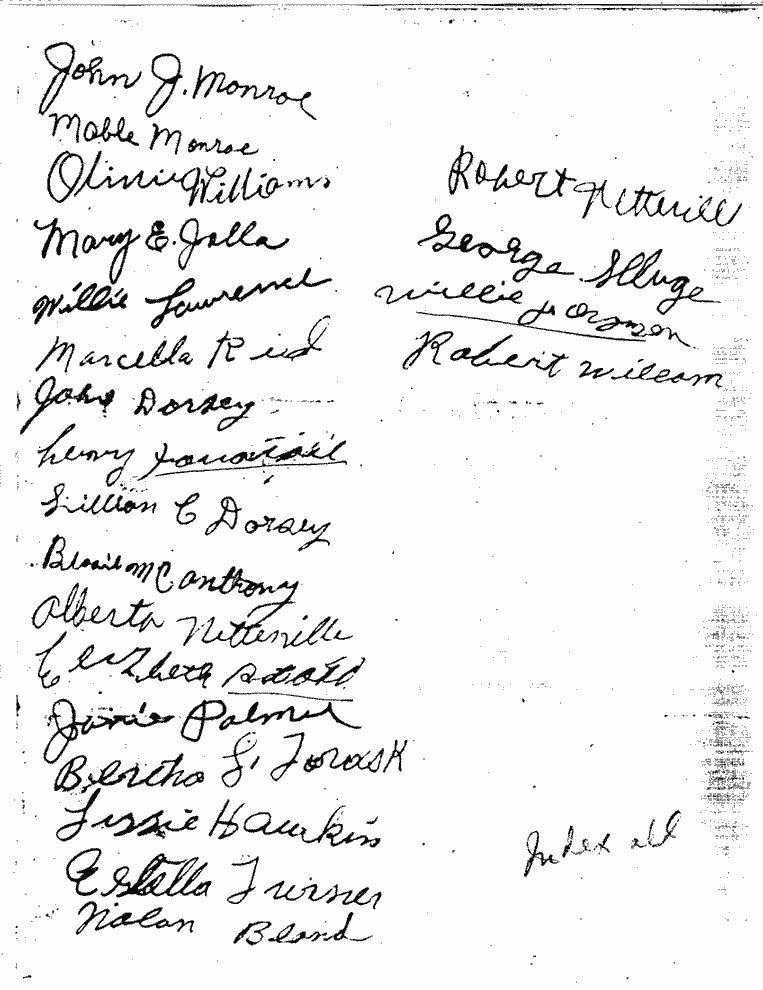 John J. Monroe
Mable Monroe
Olivia Williams
Mary E. Jolla
Willie Lawrence
Marcella Reid
John Dorsey
henry
Lillian C Dorsey
McCanthony
Alberta Netterville
Janie Palmer
Bertha L.
Lissie Hawkins
Estella Turner
Nolan Bland
Robert Netterill
George
Willie
Robert William
Index all